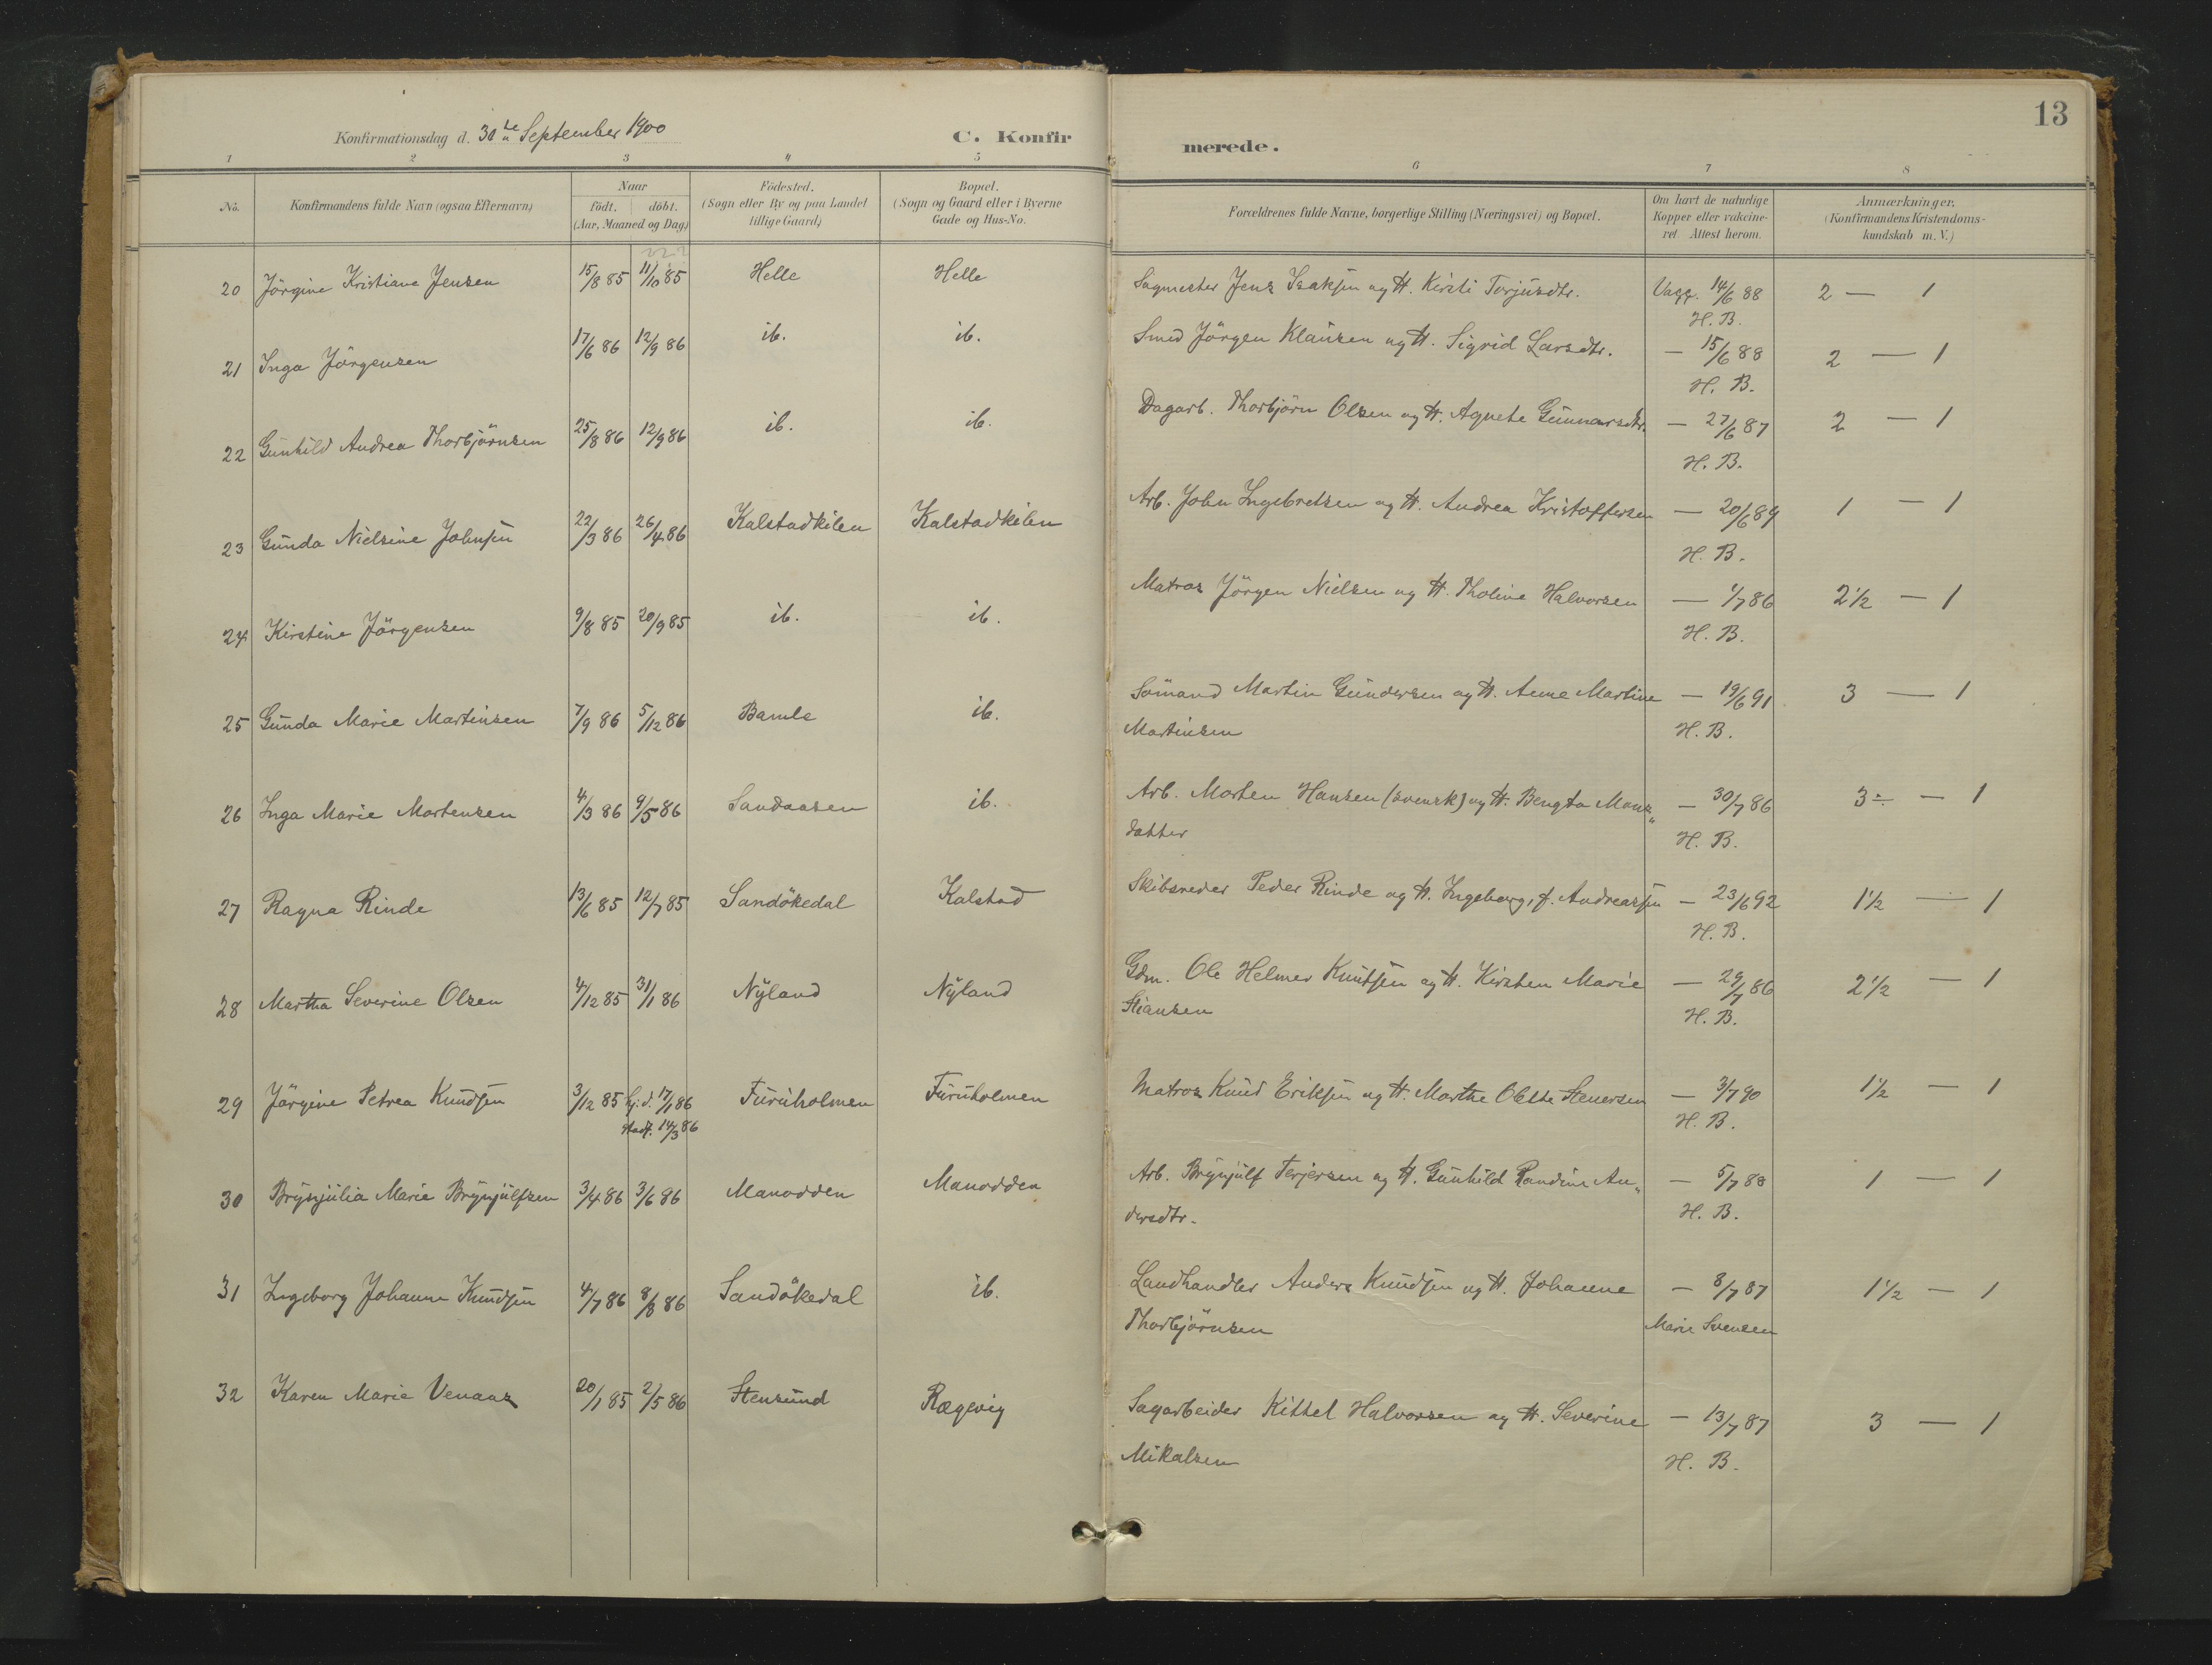 Konfirmationsdag d. 30te September 1900
C. Konfir
merede.
13
1 2 3 4 5 6 7 8
No. Konfirmandens fulde Navn (ogsaa Efternavn) Naar födt. döbt. (Aar, Maaned og Dag) Födested. (Sogn eller By og paa Landet tillige Gaard) Bopæl. (Sogn og Gaard eller i Byerne Gade og Hus-No. Forældrenes fulde Navne, borgerlige Stilling (Næringsvei) og Bopæl. Om havt de naturlige Kopper eller vakcineret Attest herom. Anmærkninger. (Konfirmandens Kristendomskundskab m. V.)
20 Jörgine Kristiane Jensen 15/8 85 11/10 85 Helle Helle Sagmester Jens Isaksen og H. Kirsti Torjusdtr. Vacc. 14/6 88 2 — 1
H. B.
21 Inga Jörgensen 17/6 86 12/9 86 ib. ib. Smed Jörgen Klausen og H. Sigrid Larsdtr. — 15/6 88 2 — 1
H. B.
22 Gunhild Andrea Thorbjörnsen 25/8 86 12/9 86 ib. ib. Dagarb. Thorbjörn Olsen og H. Agnete Gunnarsdtr. — 27/6 87 2 — 1
H. B.
23 Gunda Nielsine Johnsen 22/3 86 26/4 86 Kalstadkilen Kalstadkilen Arb. John Ingebretsen og H. Andrea Kristoffersen — 20/6 89 1 — 1
H. B.
24 Kirstine Jörgensen 9/8 85 20/9 85 ib. ib. Matros Jörgen Nielsen og H. Tholine Halvorsen — 1/7 86 2½ — 1
H. B.
25 Gunda Marie Martinsen 7/9 86 5/12 86 Bamle ib. Sömand Martin Gundersen og H. Anne Martine — 19/6 91 3 — 1
Martinsen H. B.
26 Inga Marie Mortensen 4/3 86 9/5 86 Sandaasen ib. Arb. Morten Hansen (svensk) og H. Bengta Mons„ — 30/7 86 3÷ — 1
datter H. B.
27 Ragna Rinde 13/6 85 12/7 85 Sandökedal Kalstad Skibsreder Peder Rinde og H. Ingeborg, f. Andreassen — 23/6 92 1½ — 1
H. B.
28 Martha Severine Olsen 4/12 85 31/1 86 Nyland Nyland Gdm. Ole Helmer Knutsen og H. Kirsten Marie — 29/7 86 2½ — 1
Stiansen H. B.
29 Jörgine Petrea Knudsen 3/12 85 hj. d. 17/1 86 Furuholmen Furuholmen Matros Knud Eriksen og H. Marthe Olette Stenersen — 3/7 90 1½ — 1
stadf. 14/3 86 H. B.
30 Brynjulia Marie Brynjulfsen 3/4 86 3/6 86 Manodden Manodden Arb. Brynjulf Terjersen og H. Gunhild Randine An„ — 5/7 88 1 — 1
dersdtr. H. B.
31 Ingeborg Johanne Knudsen 4/7 86 8/8 86 Sandökedal ib. Landhandler Anders Knudsen og H. Johanne — 8/7 87 1½ — 1
Thorbjörnsen Marie Svensen
32 Karen Marie Venaas 20/1 85 2/5 86 Stensund Rægevig Sagarbeider Kittel Halvorsen og H. Severine — 13/7 87 3 — 1
Mikalsen H. B.